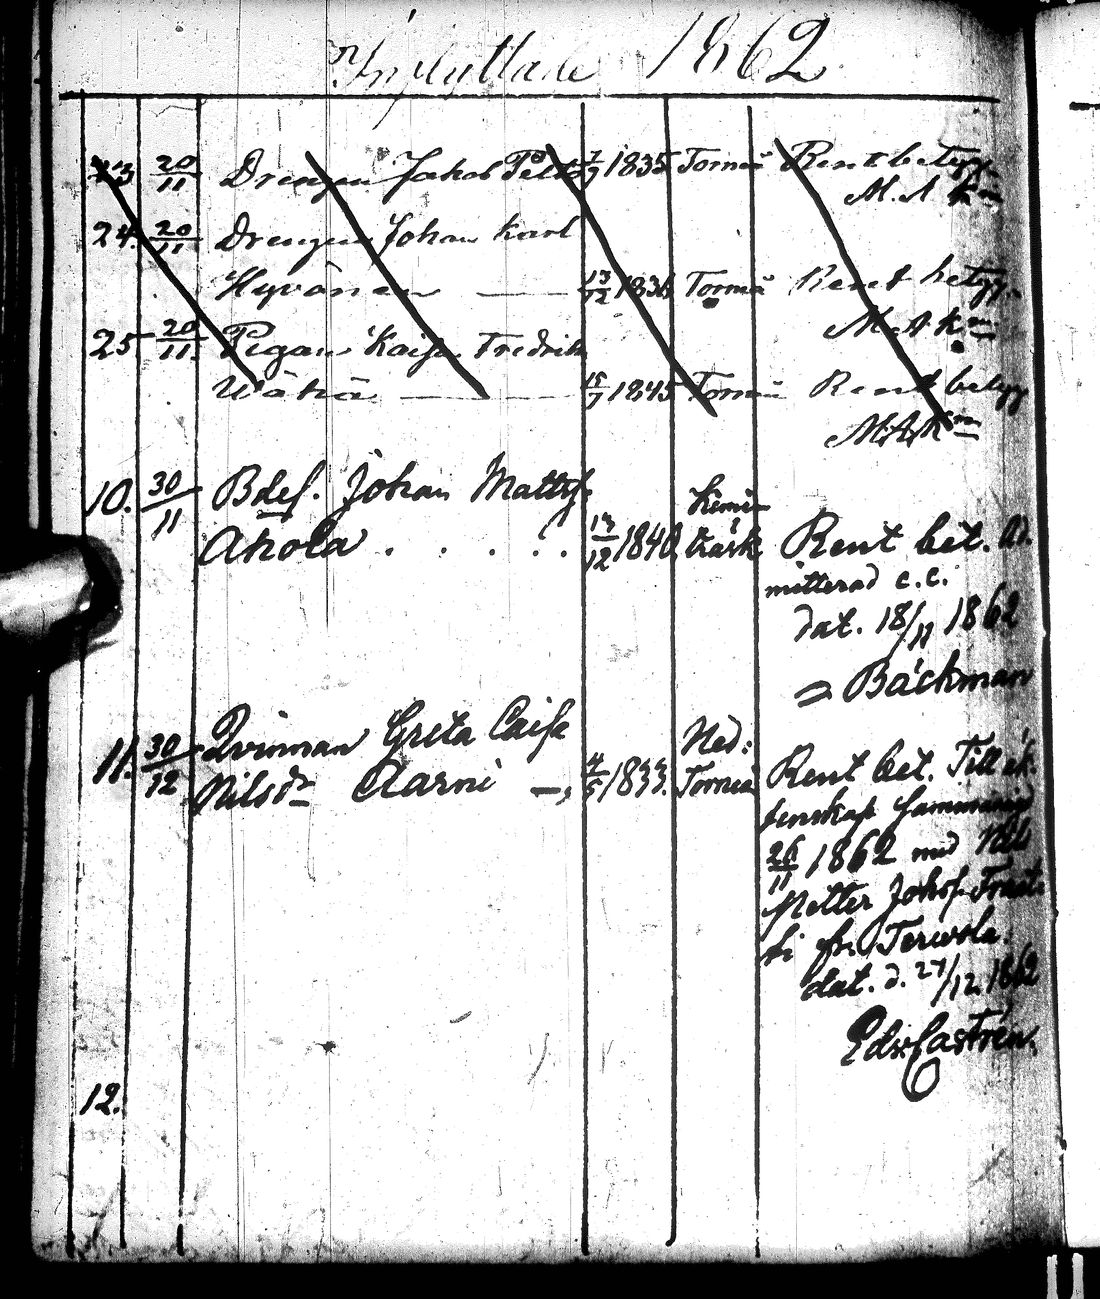 Inflyttade 1862
23 20/11 Drengen Jakob Pelto 7/7 1835 Torneå Rent betyg.
M. A. K:m
24. 20/11 Drengen Johan Karl
Hyvönen — 13/12 1836 Torneå Rent betyg.
M. A. K:m
25 20/11 Pigan Kaisa Fredrika
Wähä — 15/7 1845 Torneå Rent betyg
M.A.K:m
10. 30/11 Bdes. Johan Matts
Ahola . . . . 13/12 1840 Kemi-
träsk Rent bet. Ad.
mitterad c. c.
dat. 18/11 1862
Bäckman
11. 30/12 Qvinnan Greta Caisa
Nilsdr Aarni —, 4/5 1833. Ned:
Torneå Rent bet. Till äk-
tenskap
26/11 1862 med
Petter Johsf
ti fr. Terwola.
dat. d. 27/12 1862
Edv Castrén.
12.